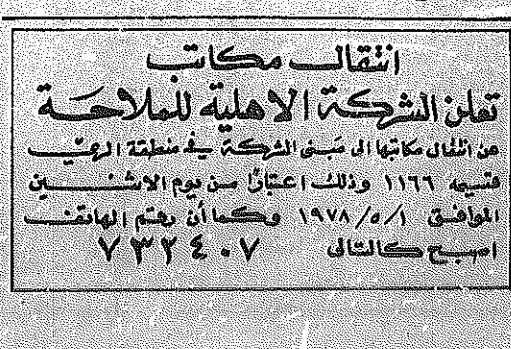 انتقال مكاتب
تعلن الشركة الاهلية للملاحة
عن انتقال مكاتبها الى مبنى الشركة في منطقة الري
قسيمه ١١٦٦ وذلك اعتبارًا من يوم الاثنين
الموافق ١٩٧٨/٥/١ وكما أن رقم الهاتف
اصبح كالتالي ٧٣٢٤٠٧